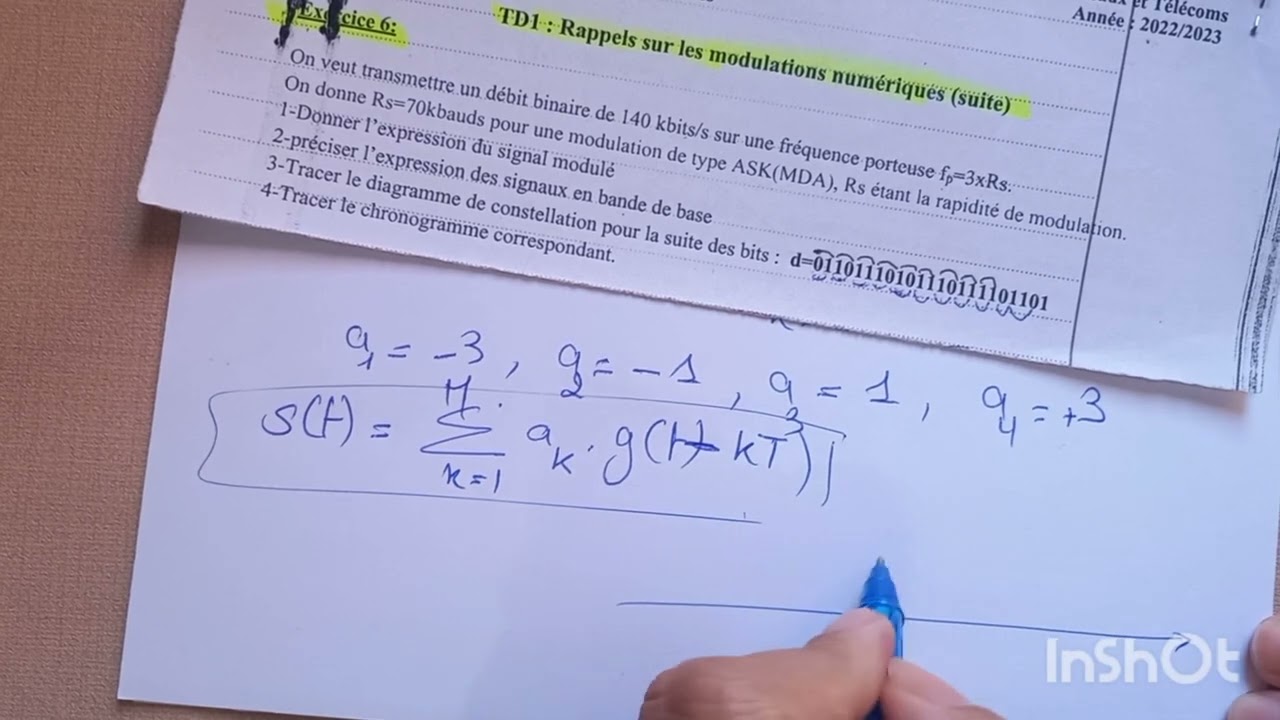 et Télécoms
Année : 2022/2023
TD1 : Rappels sur les modulations numériques (suite)
Exercice 6:
On veut transmettre un débit binaire de 140 kbits/s sur une fréquence porteuse fp=3xRs.
On donne Rs=70kbauds pour une modulation de type ASK(MDA), Rs étant la rapidité de modulation.
1-Donner l'expression du signal modulé
2-préciser l'expression des signaux en bande de base
3-Tracer le diagramme de constellation pour la suite des bits : d=
4-Tracer le chronogramme correspondant.
a1 = -3 , a2 = -1 , a3 = 1 , a4 = +3
s(t) = Σ M k=1 ak . g(t-kT)
InShOt